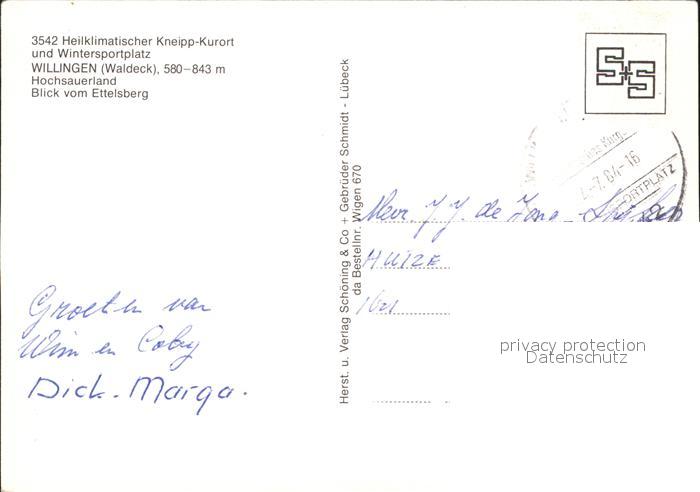 3542 Heilklimatischer Kneipp-Kurort
und Wintersportplatz
WILLINGEN (Waldeck), 580–843 m
Hochsauerland
Blick vom Ettelsberg
Groeten van
Wim en Coby
Dick. Marga.
Herst. u. Verlag Schöning & Co + Gebrüder Schmidt - Lübeck
da Bestellnr. Wigen 670
S+S
-7.84-16
ORTPLATZ
Mevr. J. J. de
HUIZE
privacy protection
Datenschutz